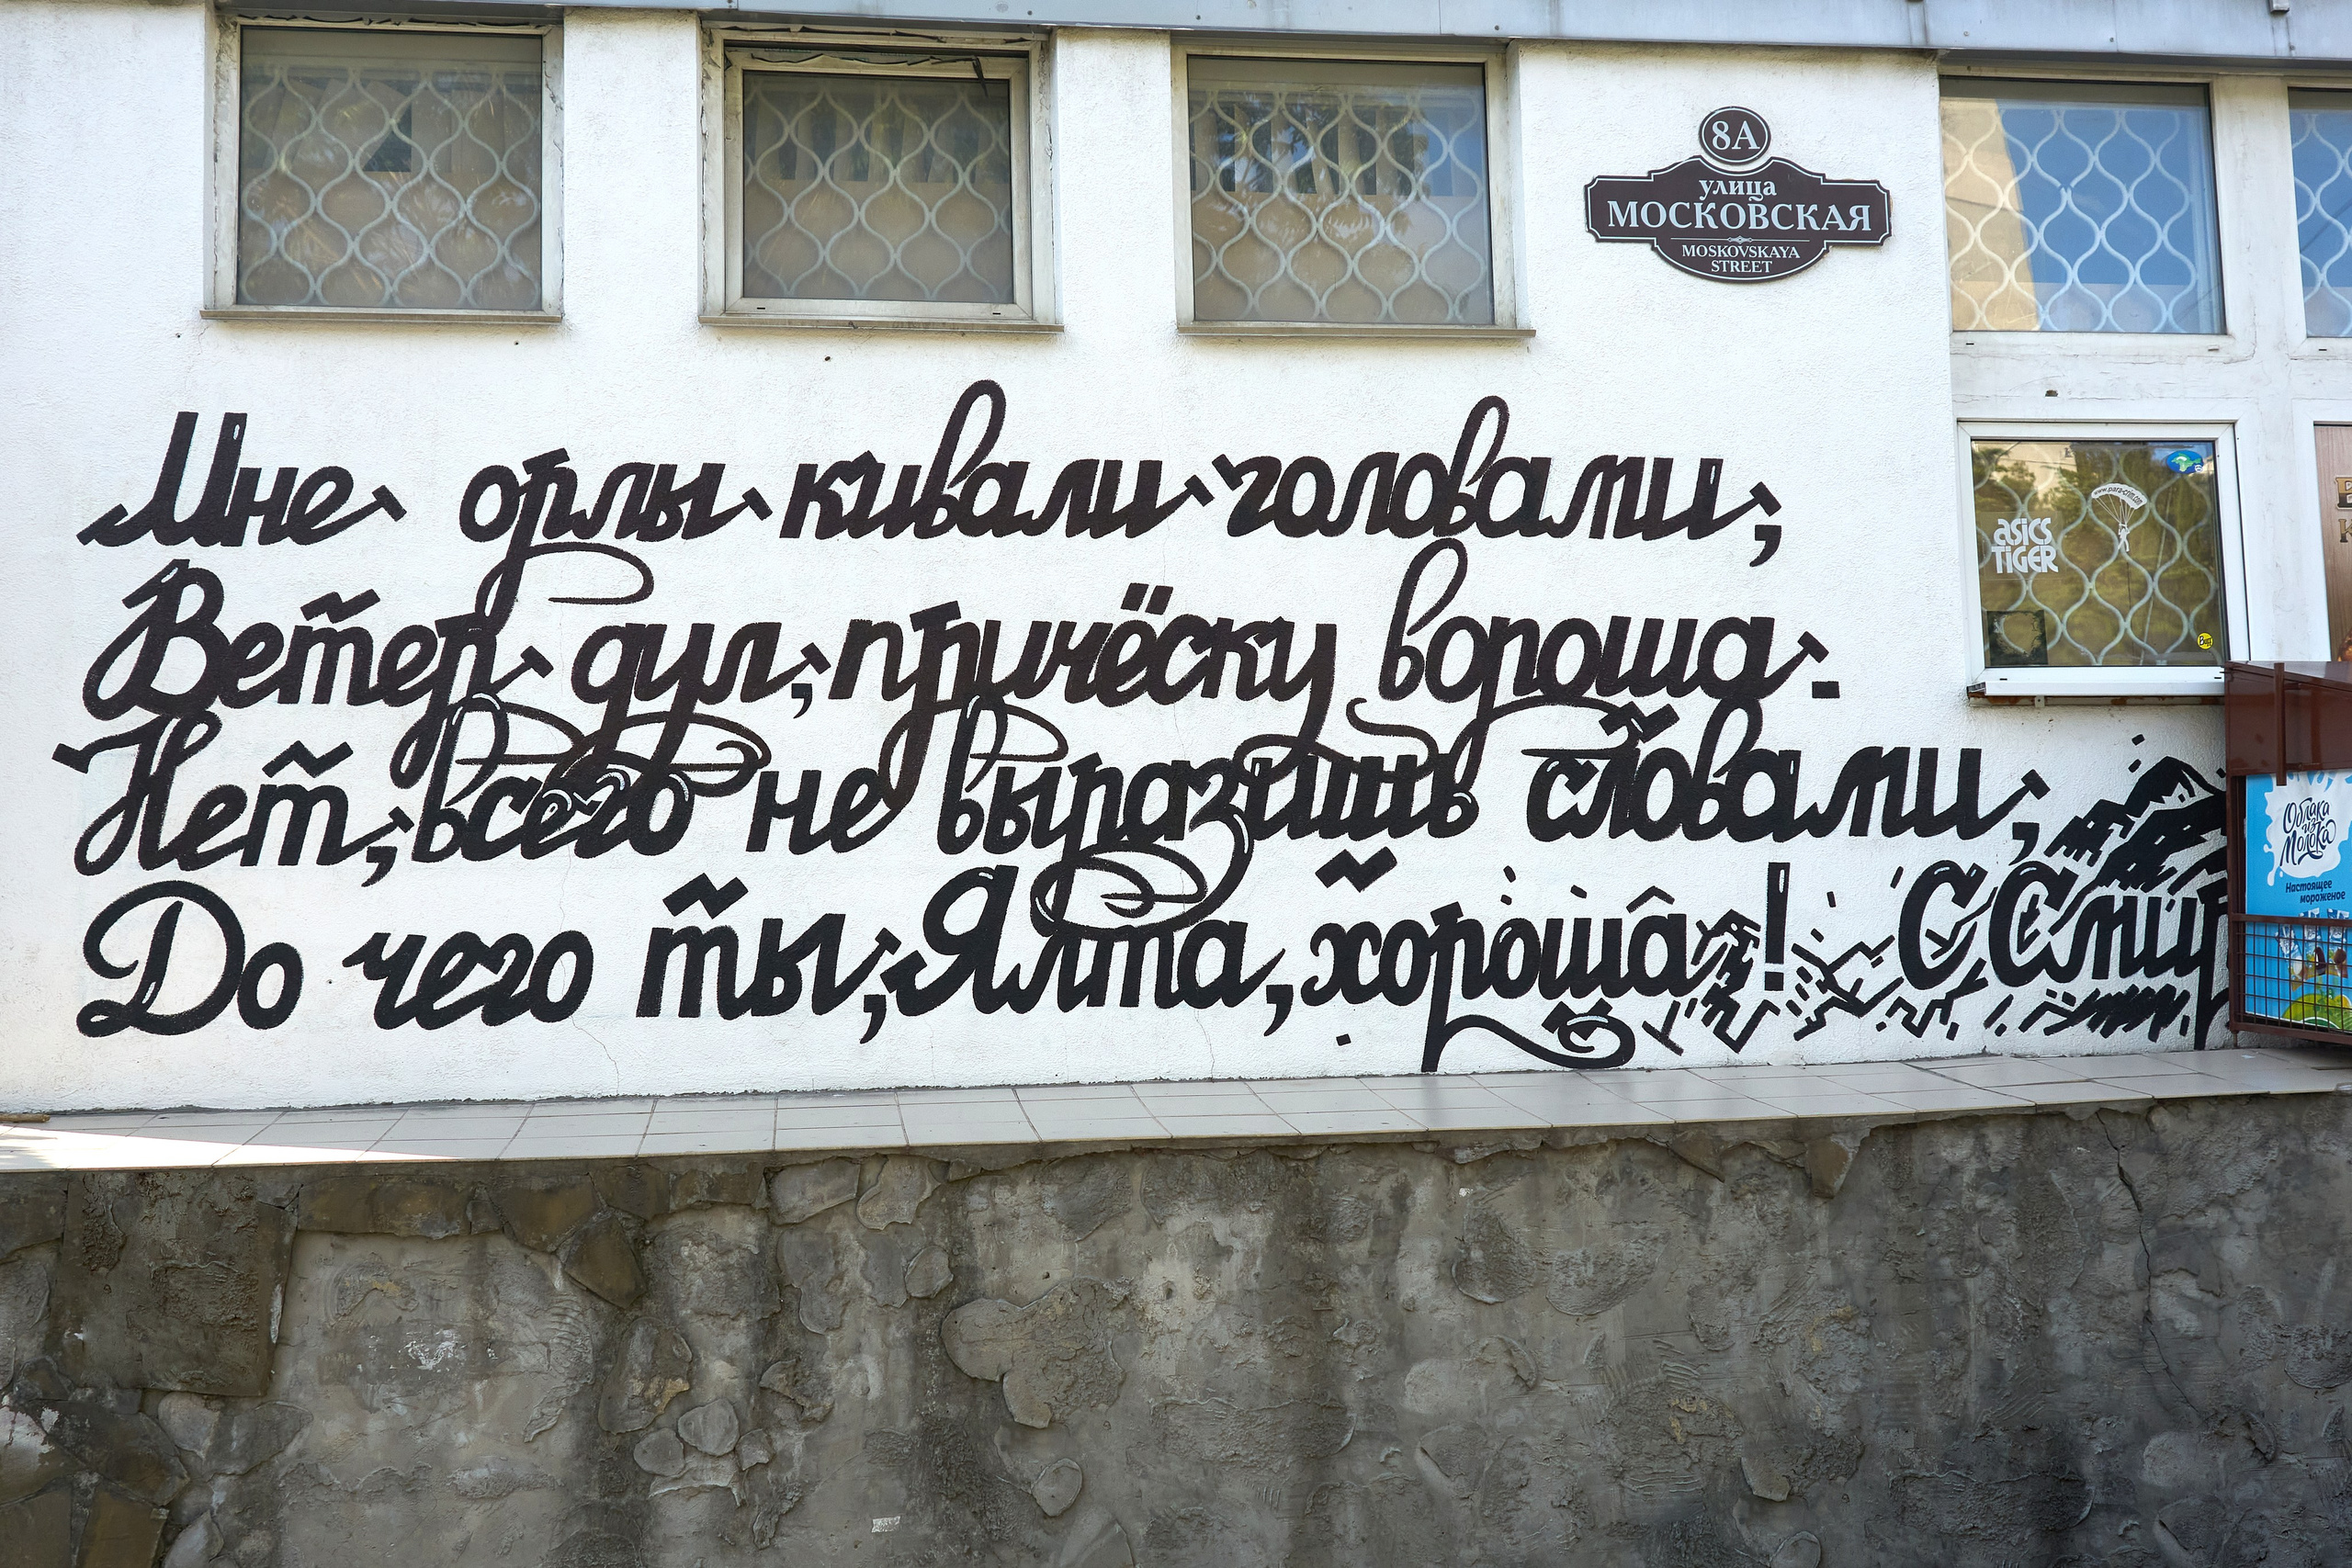 8А
улица
МОСКОВСКАЯ
MOSKOVSKAYA
STREET
Мне орлы кивали головами,
Ветер дул, причёску вороша.
Нет, всего не выразишь словами,
До чего ты, Ялта, хороша!
С Смир
asics
TIGER
www.para-crim.com
Облака
из
Молока
Настоящее
мороженое